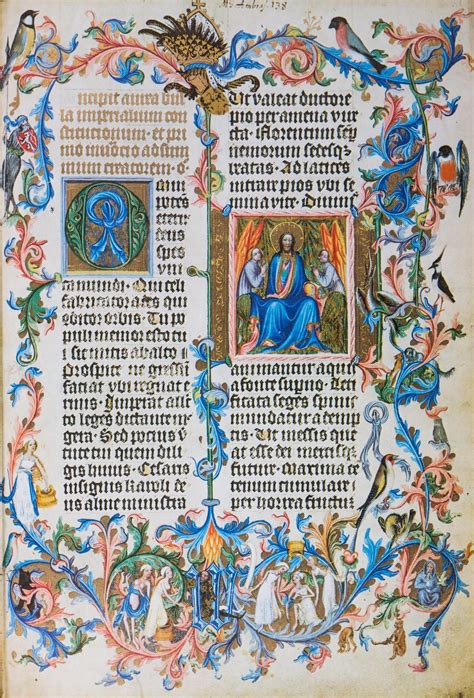 Ms. Ambras. 138
Incipit aurea bul
la imperialium con
stitucionum. et pri
mo invocacio ad sum
mum creatorem.
Omni
potens
eterne
deus
spes
uni
ca mundi. Qui celi
fabricator ades qui
conditor orbis. Tu po
puli memor esto tui
sic mitis ab alto
prospice ne gressum
faciat ubi regnat
erinis. Imperat alle
cto leges dictante me
gera. Sed pocius vir
tute tui quem dili
gis huius. Cesaris
insignis karoli de
us alme ministra
Ut valeat ductore
pio per amena vire
cta. florentum sep
nemorum sedesq
beatas. Ad latices
intrare pios ubi se
mina vite. Divinis
animantur aquis
a fonte superno. Leti
ficata seges spinis
mundaturademp
tis. Ut messis que
at esse dei mercisque
future. Maxima ce
tenum cumulare
per horrea fructum